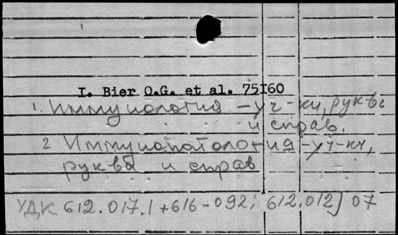 I. Bier O.G. et al. 75I60
1. Иммунология – уч-ки, руква
и справ.
2 Иммунопатология – уч-ки,
руква и справ
УДК 612.017.1+616-092; 612.012] 07